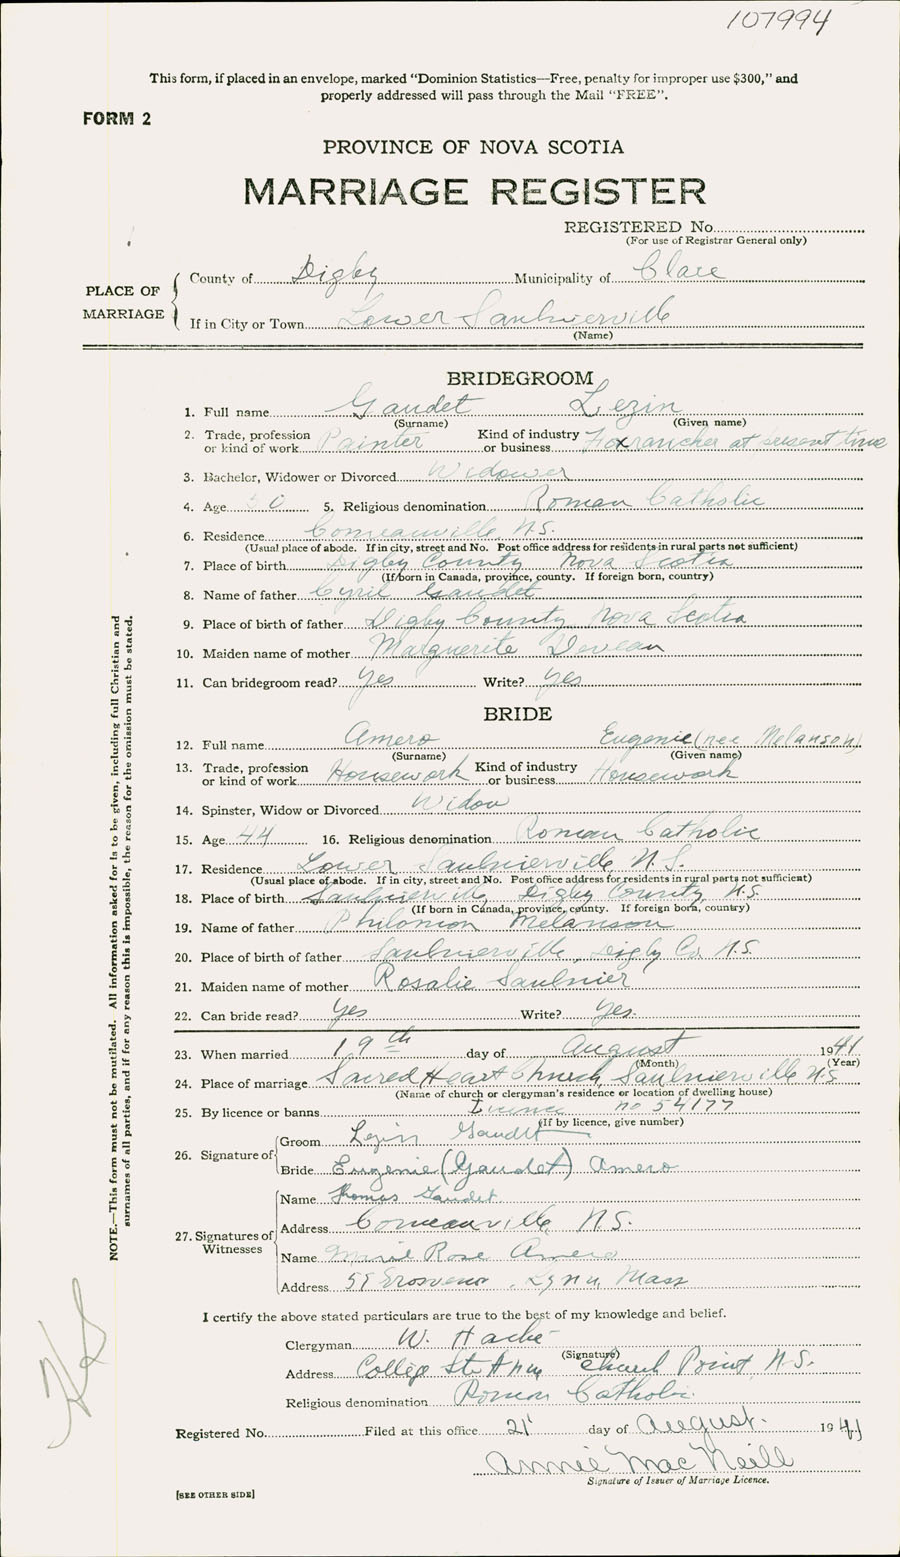 107994
This form, if placed in an envelope, marked “Dominion Statistics—Free, penalty for improper use $300,” and
properly addressed will pass through the Mail “FREE”.
FORM 2
PROVINCE OF NOVA SCOTIA
MARRIAGE REGISTER
REGISTERED No.
(For use of Registrar General only)
PLACE OF MARRIAGE
County of Digby Municipality of Clare
If in City or Town Lower Saulnierville
(Name)
BRIDEGROOM
1. Full name Gaudet Lezin
(Surname) (Given name)
2. Trade, profession or kind of work Painter Kind of industry or business Foxrancher at present time
3. Bachelor, Widower or Divorced Widower
4. Age 50 5. Religious denomination Roman Catholic
6. Residence Comeauville, N.S.
(Usual place of abode. If in city, street and No. Post office address for residents in rural parts not sufficient)
7. Place of birth Digby County Nova Scotia
(If born in Canada, province, county. If foreign born, country)
8. Name of father Cyril Gaudet
9. Place of birth of father Digby County Nova Scotia
10. Maiden name of mother Marguerite Deveau
11. Can bridegroom read? yes Write? yes
BRIDE
12. Full name Amero Eugenie (nee Melanson)
(Surname) (Given name)
13. Trade, profession or kind of work Housework Kind of industry or business Housework
14. Spinster, Widow or Divorced Widow
15. Age 44 16. Religious denomination Roman Catholic
17. Residence Lower Saulnierville, N.S.
(Usual place of abode. If in city, street and No. Post office address for residents in rural parts not sufficient)
18. Place of birth Saulnierville, Digby County, N.S.
(If born in Canada, province, county. If foreign born, country)
19. Name of father Philomon Melanson
20. Place of birth of father Saulnierville, Digby Co. N.S.
21. Maiden name of mother Rosalie Saulnier
22. Can bride read? yes Write? yes.
23. When married 19th day of August 1941
(Month) (Year)
24. Place of marriage Sacred Heart Church, Saulnierville N.S.
(Name of church or clergyman's residence or location of dwelling house)
25. By licence or banns Licence no 54177
(If by licence, give number)
26. Signature of
Groom Lezin Gaudet
Bride Eugenie (Gaudet) Amero
27. Signatures of Witnesses
Name Thomas Gaudet
Address Comeauville N.S.
Name Rose Amero
Address Grosvenor, Lynn, Mass
I certify the above stated particulars are true to the best of my knowledge and belief.
Clergyman W. Haché
(Signature)
Address College Ste Anne Church Point, N.S.
Religious denomination Roman Catholic
Registered No. Filed at this office 21 day of August. 1941
Annie MacNeill
Signature of Issuer of Marriage Licence.
[SEE OTHER SIDE]
NOTE.—This form must not be mutilated. All information asked for is to be given, including full Christian and
surnames of all parties, and if for any reason this is impossible, the reason for the omission must be stated.